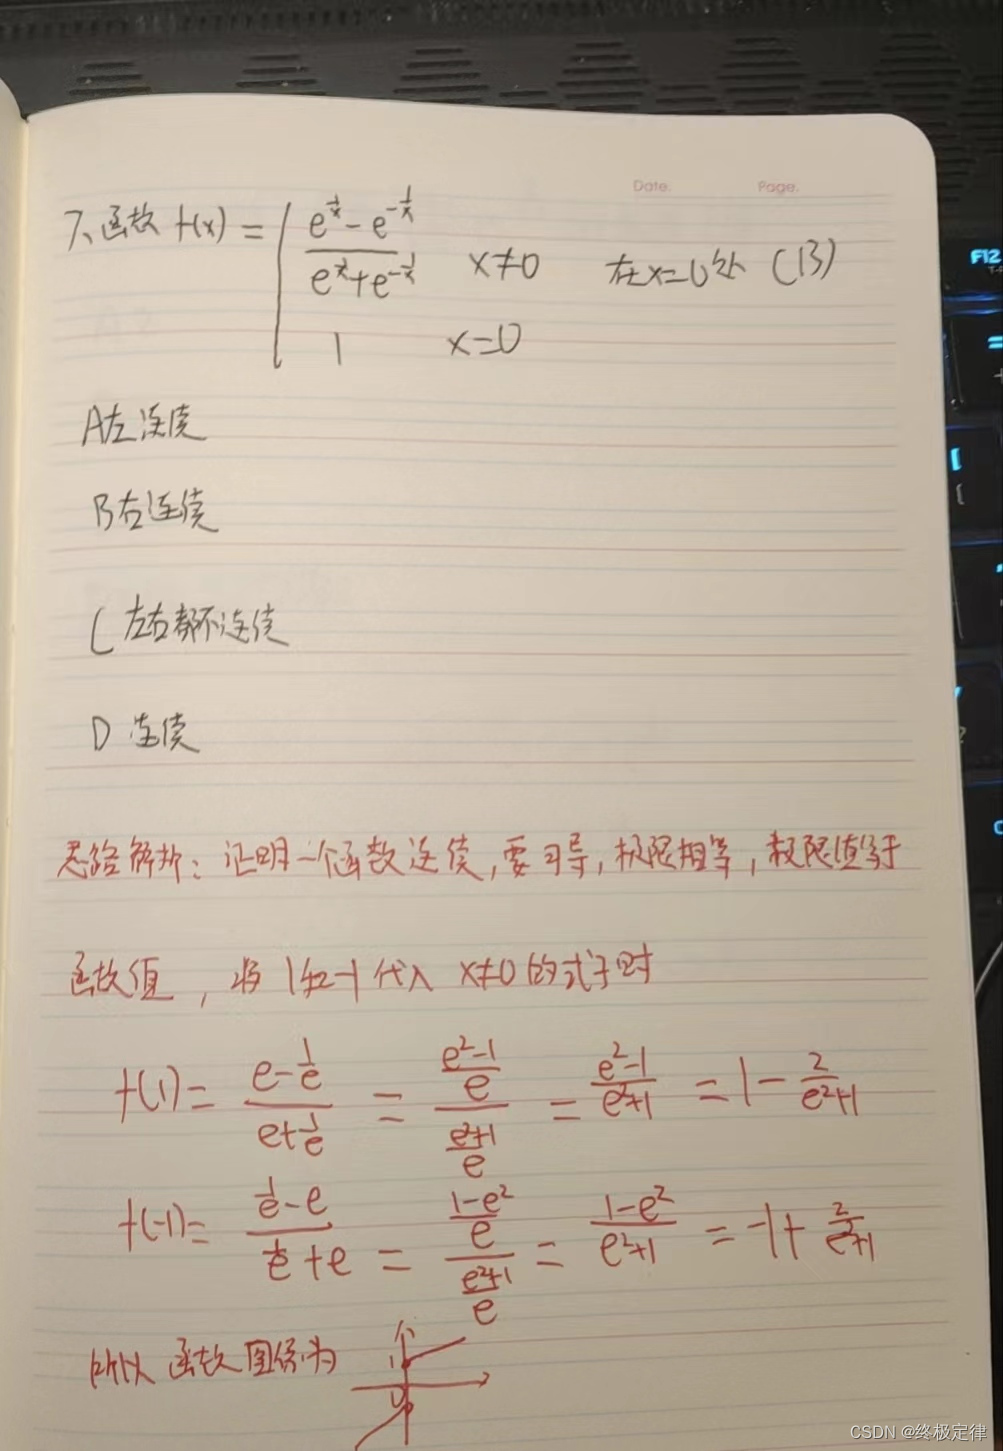 Date. Page.
7、函数 f(x) = { (e^(1/x) - e^(-1/x)) / (e^(1/x) + e^(-1/x)) x≠0 在x=0处 (B)
1 x=0
A左连续
B右连续
C 左右都不连续
D 连续
思路解析：证明一个函数连续，要可导，极限相等，极限值等于
函数值，当 1和-1 代入 x≠0 的式子时
f(1) = (e - 1/e) / (e + 1/e) = ((e²-1)/e) / ((e²+1)/e) = (e²-1)/(e²+1) = 1 - 2/(e²+1)
f(-1) = (1/e - e) / (1/e + e) = ((1-e²)/e) / ((e²+1)/e) = (1-e²)/(e²+1) = -1 + 2/(e²+1)
所以 函数图像为
1
0
F12
CSDN @终极定律